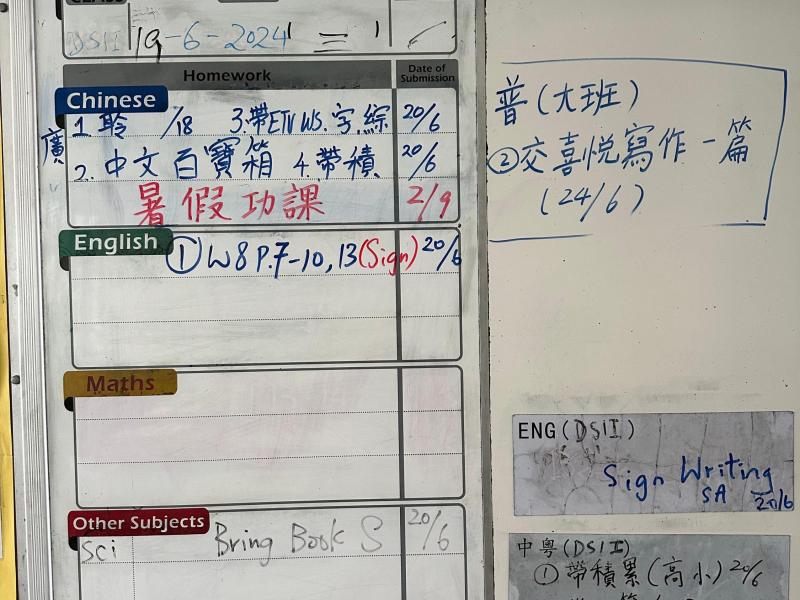 DSII 19-6-2024 三
Homework
Date of Submission
Chinese
廣
1. 聆 /18 3.帶ETV WS.字.綜 20/6
2. 中文百寶箱 4.帶積 20/6
暑假功課 2/9
English
① W8 P.7-10, 13 (Sign) 20/6
Maths
Other Subjects
Sci Bring Book S 20/6
普(大班)
②交喜悦寫作一篇
(24/6)
ENG(DSII)
Sign Writing
SA 20/6
中粵(DSII)
① 帶積累(高小) 20/6